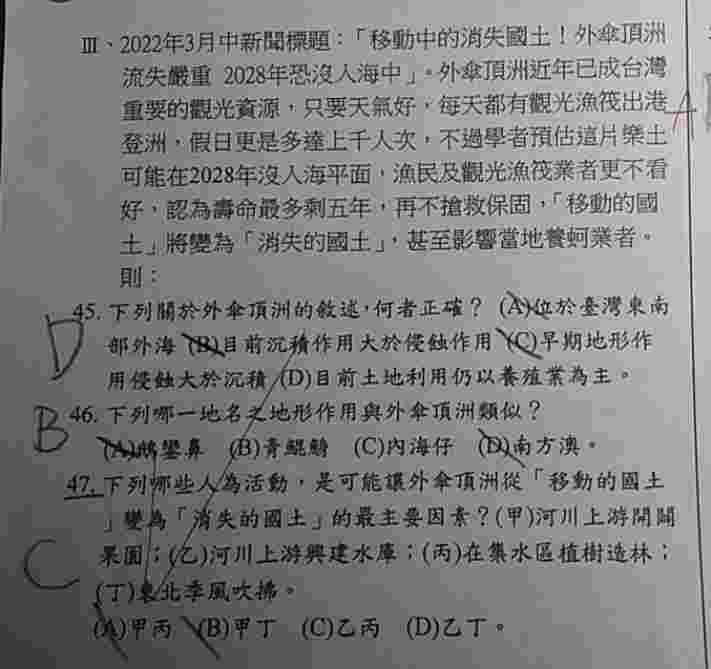 Ⅲ、2022年3月中新聞標題：「移動中的消失國土！外傘頂洲
流失嚴重 2028年恐沒入海中」。外傘頂洲近年已成台灣
重要的觀光資源，只要天氣好，每天都有觀光漁筏出港
A
登洲，假日更是多達上千人次，不過學者預估這片樂土
可能在2028年沒入海平面，漁民及觀光漁筏業者更不看
好，認為壽命最多剩五年，再不搶救保固，「移動的國
土」將變為「消失的國土」，甚至影響當地養蚵業者。
則：
D
45. 下列關於外傘頂洲的敘述，何者正確？ (A)位於臺灣東南
部外海 (B)目前沉積作用大於侵蝕作用 (C)早期地形作
用侵蝕大於沉積 (D)目前土地利用仍以養殖業為主。
B
46. 下列哪一地名之地形作用與外傘頂洲類似？
(A)鵝鑾鼻 (B)青鯤鯓 (C)內海仔 (D)南方澳。
47. 下列哪些人為活動，是可能讓外傘頂洲從「移動的國土
」變為「消失的國土」的最主要因素？(甲)河川上游開闢
C
果園；(乙)河川上游興建水庫；(丙)在集水區植樹造林；
(丁)東北季風吹拂。
(A)甲丙 (B)甲丁 (C)乙丙 (D)乙丁。